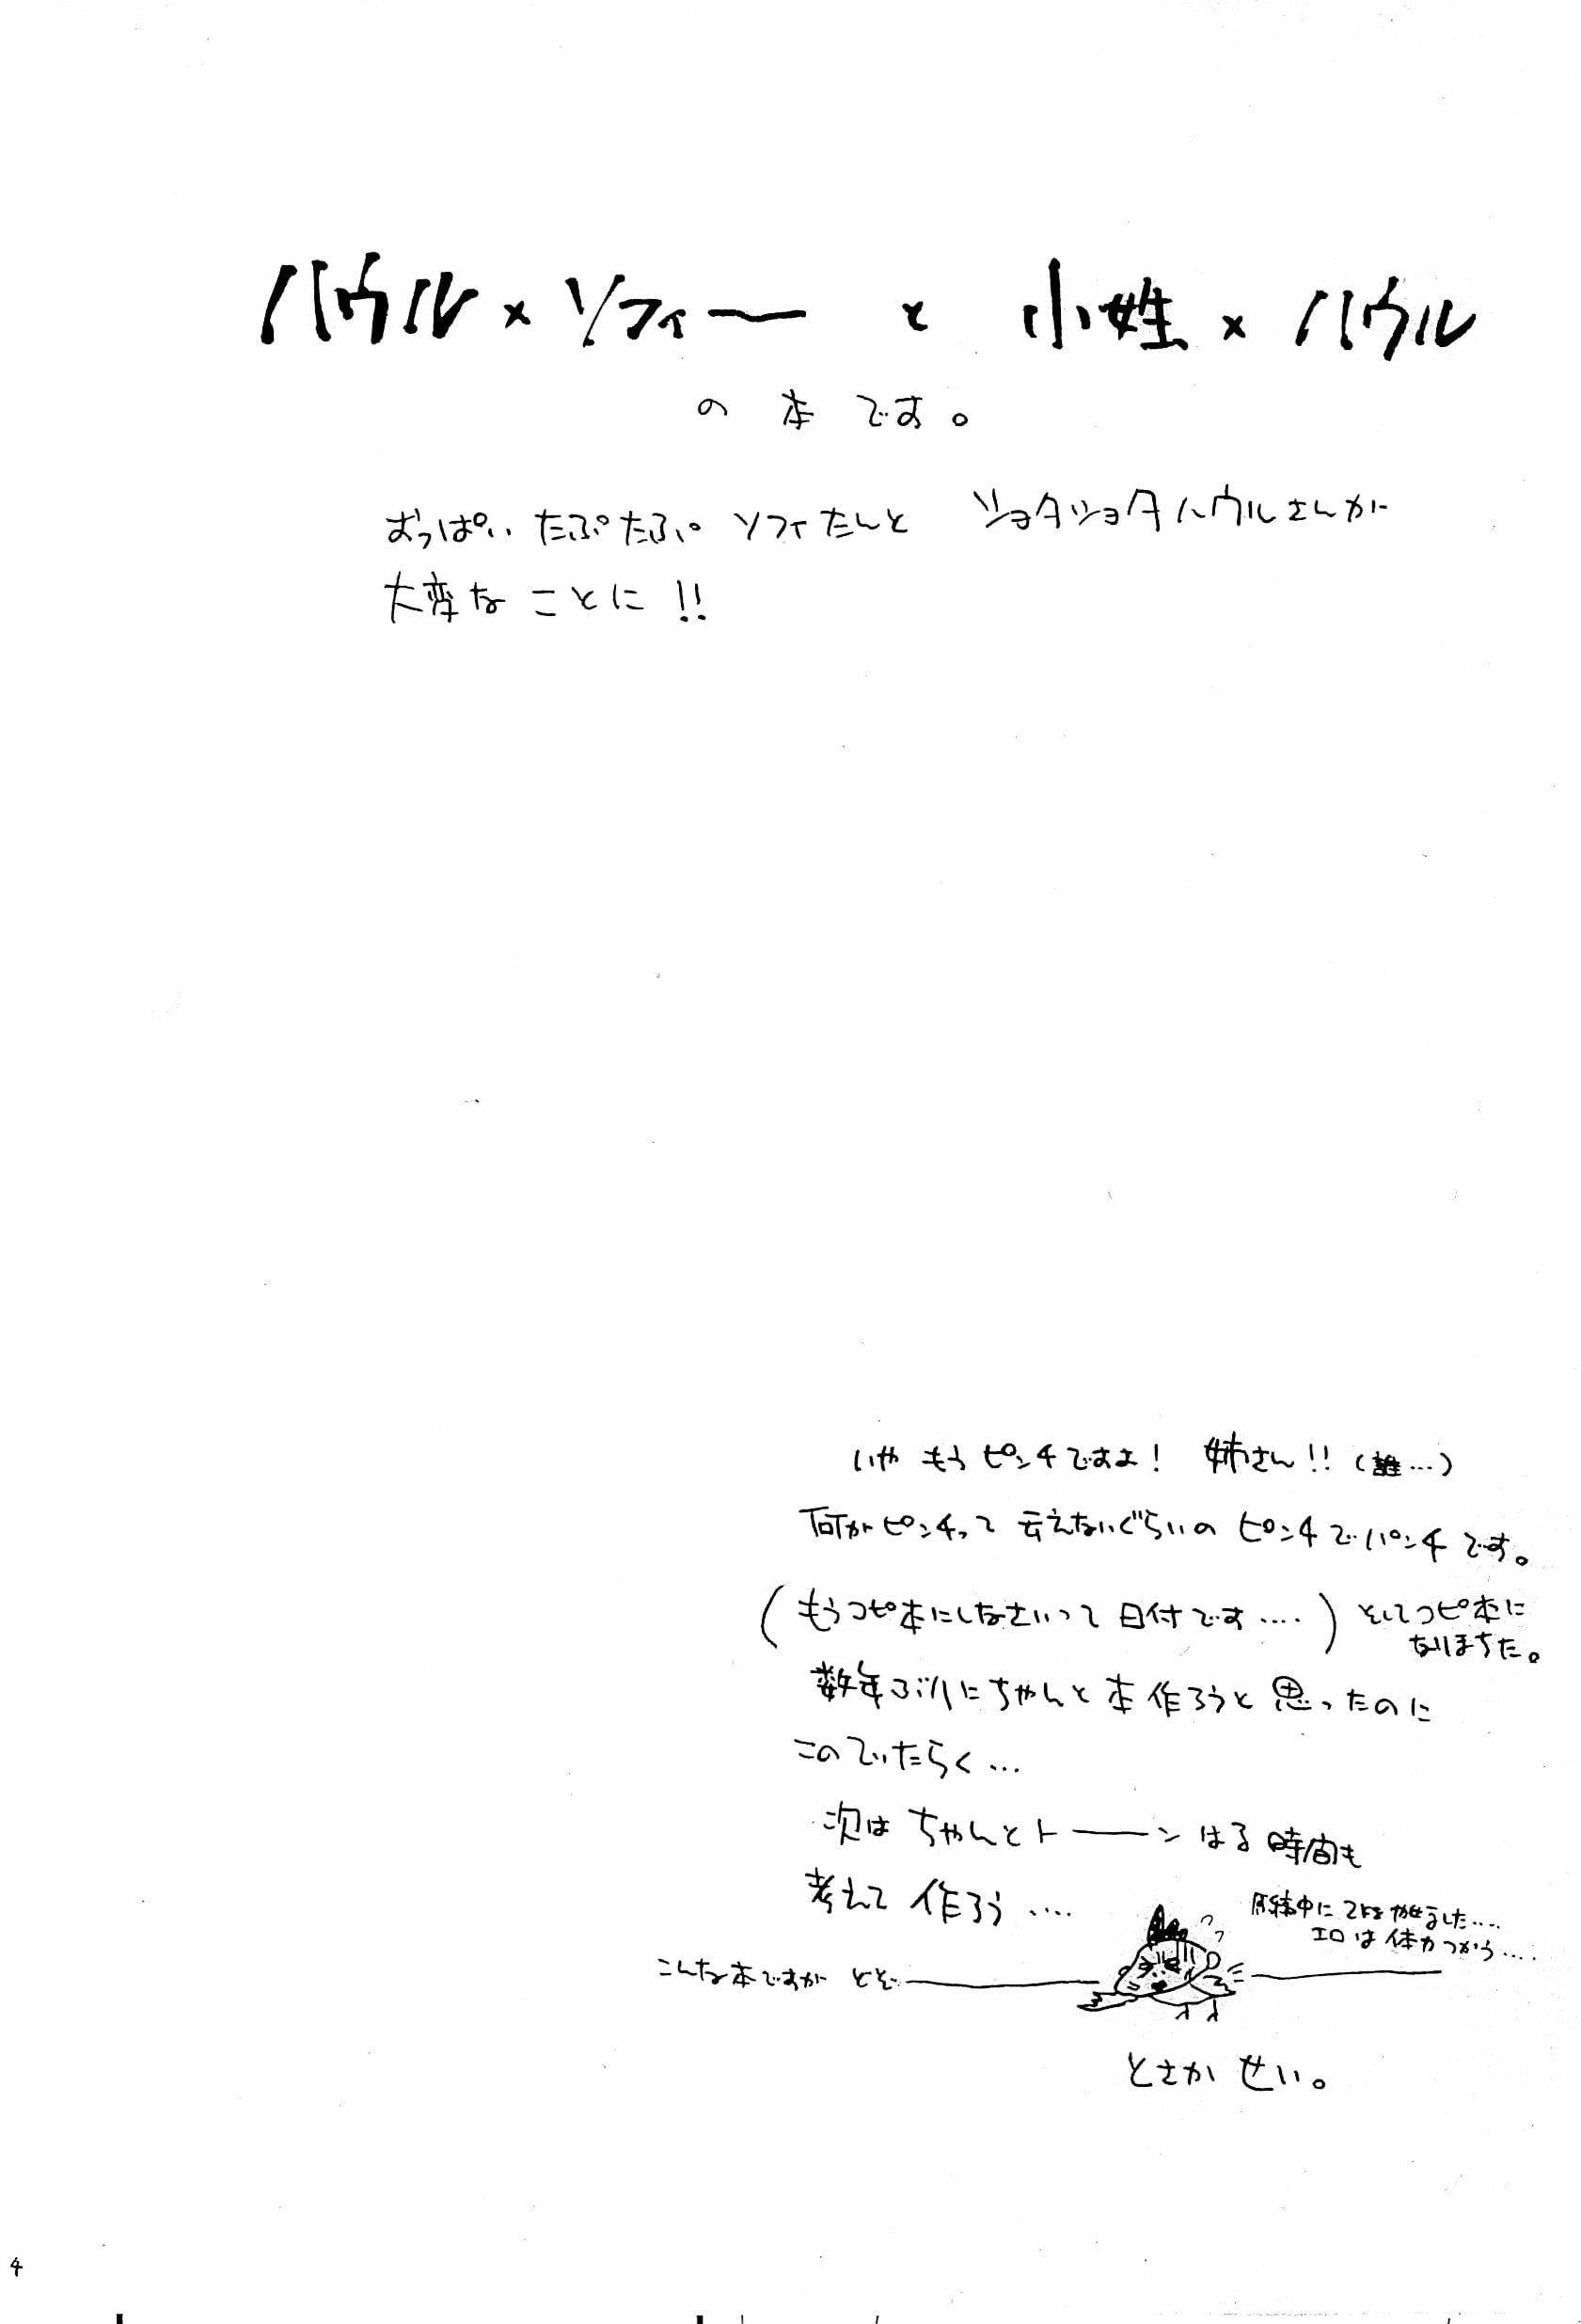 ハウル×ソフィーと小姓×ハウル
の本です。
おっぱいたぷたぷソフィたんと ショタショタハウルさんが
大変なことに!!
いやもうピンチですよ! 姉さん!!(誰…)
何がピンチって云えないぐらいのピンチでパンチです。
(もうコピ本にしなさいって日付です….) そしてコピ本に
なりまちた。
数年ぶりにちゃんと本作ろうと思ったのに
このていたらく…
次はちゃんとトーーンはる時間も
考えて作ろう….
中に
ました….
エロは体力つかう….
こんな本ですが どぞ
とさかせい。
4